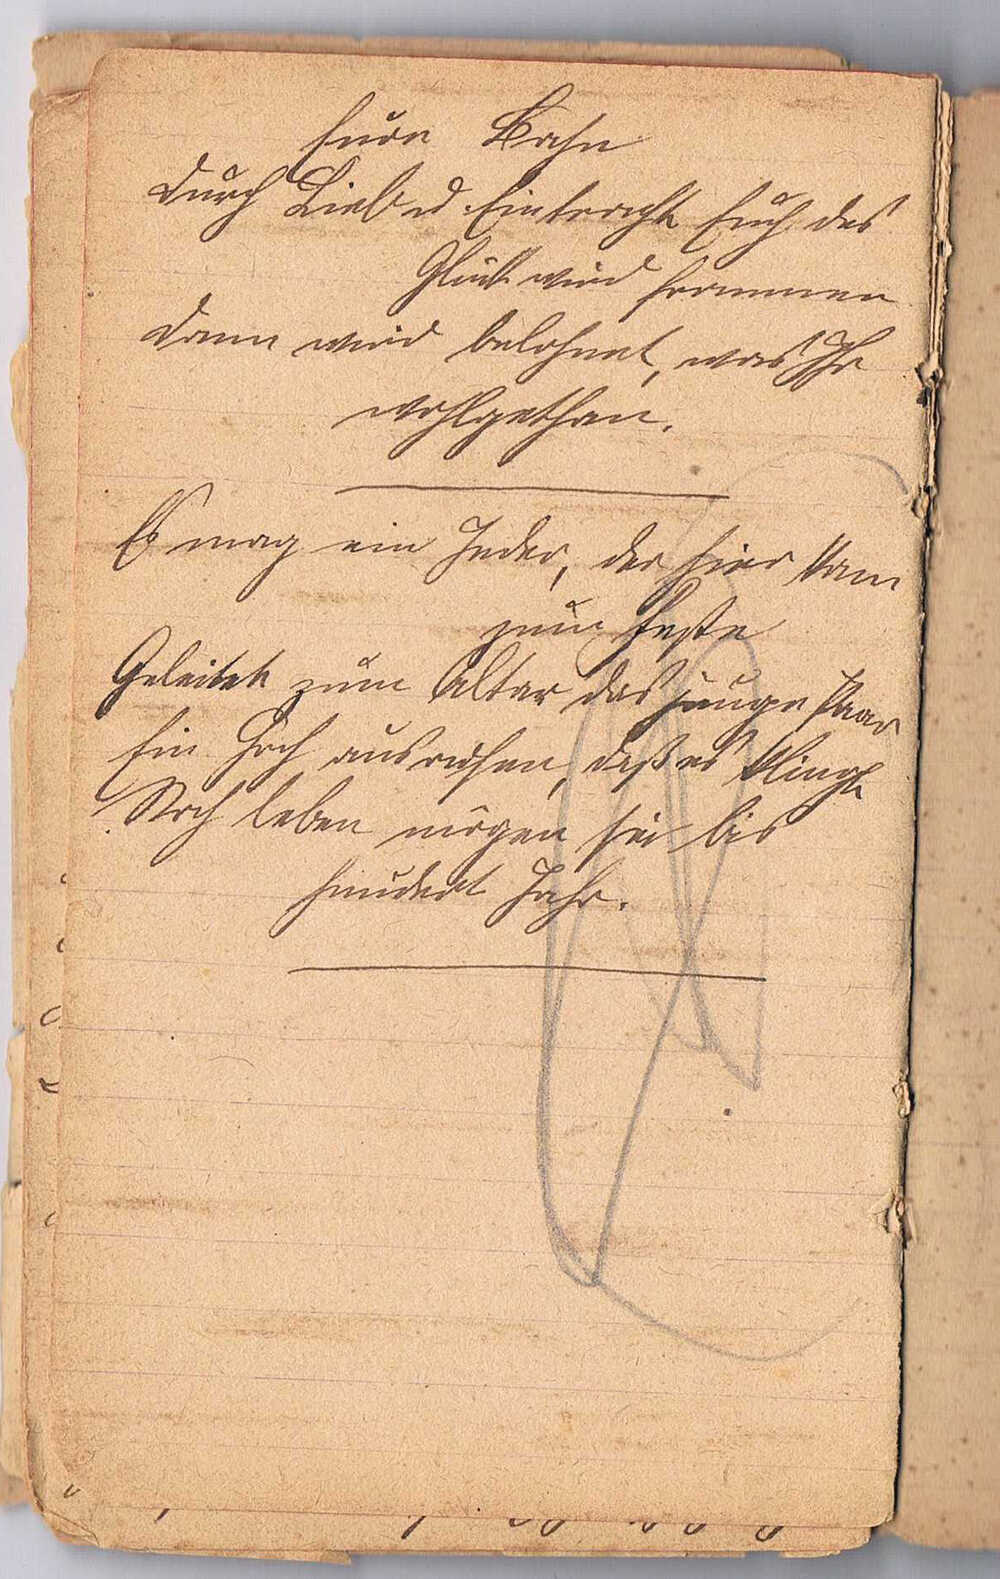 Eure Bahn
Durch Lieb u Eintracht Euch das
Glück wird frommen
Dann wird belohnet, was Ihr
wohlgethan.
Es mag ein Jeder, der hier kam
zum Feste
Geleitet zum Altar das junge Paar
Ein Hoch ausrufen, daß es klingt
Noch leben mögen sie bis
hundert Jahr.